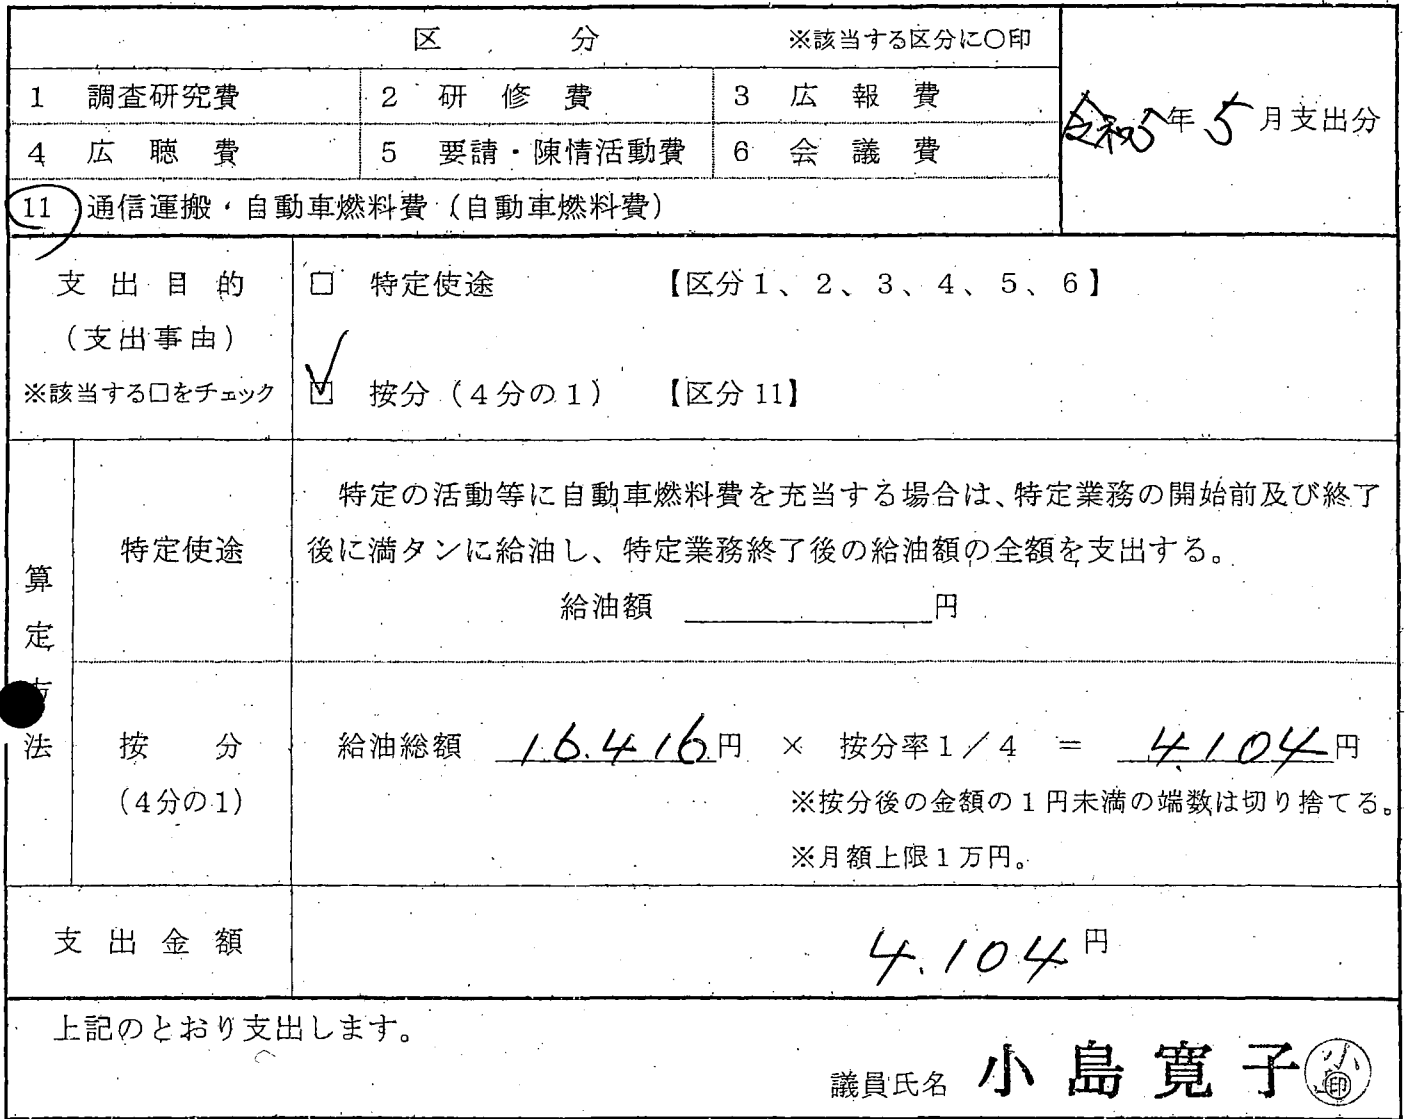 区 分 ※該当する区分に○印
1 調査研究費 2 研修費 3 広報費
令和5年5月支出分
4 広聴費 5 要請・陳情活動費 6 会議費
11 通信運搬・自動車燃料費(自動車燃料費)
支出目的 □ 特定使途 【区分1、2、3、4、5、6】
(支出事由)
※該当する□をチェック ☑ 按分(4分の1) 【区分11】
算定方法
特定使途
特定の活動等に自動車燃料費を充当する場合は、特定業務の開始前及び終了
後に満タンに給油し、特定業務終了後の給油額の全額を支出する。
給油額 円
按分 給油総額 16.416円 × 按分率1/4 = 4.104円
(4分の1) ※按分後の金額の1円未満の端数は切り捨てる。
※月額上限1万円。
支出金額 4.104円
上記のとおり支出します。
議員氏名 小島寛子 印